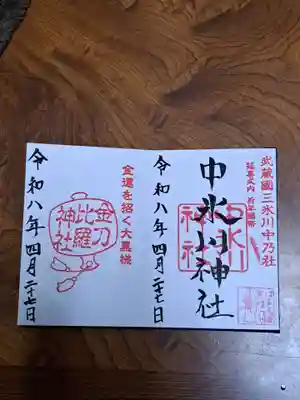 武蔵國三氷川中乃社
延喜式内 旧県社
中氷川神社
中氷川神社
令和八年 四月二十七日
金運を招く大黒様
金刀比羅神社
令和八年 四月二十七日